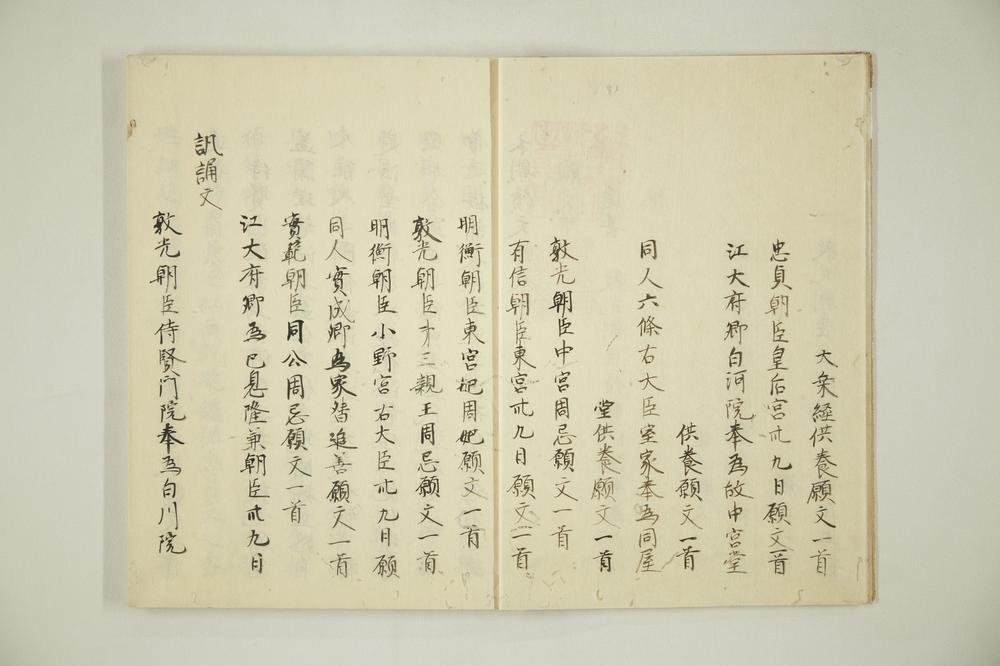 大乗經供養願文一首
忠貞朝臣皇后宮卌九日願文一首
江大府卿白河院奉為故中宮堂
供養願文一首
同人六條右大臣室家奉為同屋
堂供養願文一首
敦光朝臣中宮周忌願文一首
有信朝臣東宮卌九日願文一首
明衡朝臣東宮妃周忌願文一首
敦光朝臣才三親王周忌願文一首
明衡朝臣小野宮右大臣卌九日願
同人實成卿為家督追善願文一首
實範朝臣同公周忌願文一首
江大府卿為已息隆兼朝臣卌九日
諷誦文
敦光朝臣待賢門院奉為白川院